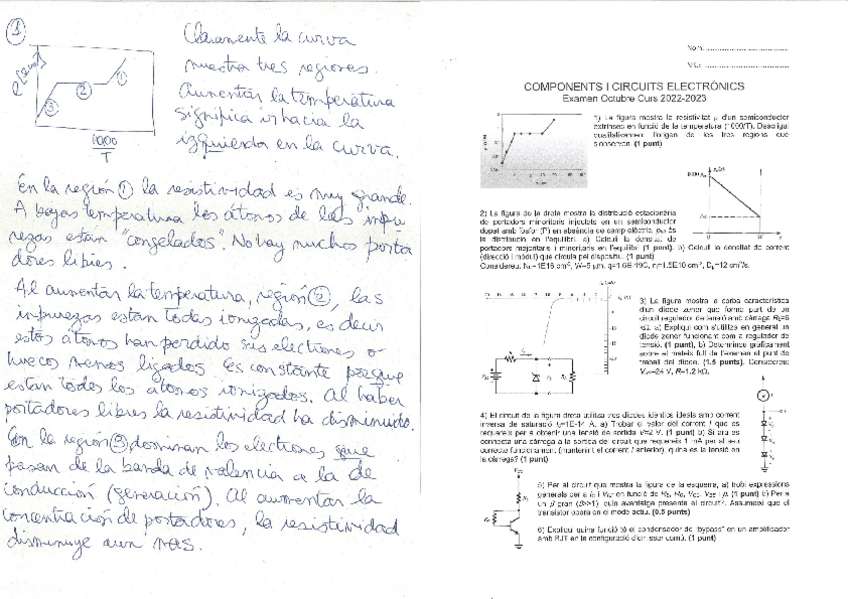 1
ρ (Ω cm)
①
②
③
1000
T
Claramente la curva
muestra tres regiones.
Aumentar la temperatura
significa ir hacia la
izquierda en la curva.
En la región ① la resistividad es muy grande.
A bajas temperatura los átomos de las impu
rezas están "congelados". No hay muchos porta
dores libres.
Al aumentar la temperatura, región ②, las
impurezas estan todas ionizadas, es decir
estos átomos han perdido sus electrones o
huecos menos ligados. Es constante porque
estan todos los átomos ionizados. Al haber
portadores libres la resistividad ha disminuido.
En la región ③ dominan los electrones que
pasan de la banda de valencia a la de
conducción (generación). Al aumentar la
concentración de portadores, la resistividad
disminuye aun más.
COMPONENTS I CIRCUITS ELECTRÒNICS
Examen Octubre Curs 2022-2023
1) La figura mostra la resistivitat ρ d'un semiconductor
extrínsec en funció de la temperatura (1000/T). Descrigui
qualitativament l'origen de les tres regions que
s'observen. (1 punt)
2) La figura de la dreta mostra la distribució estacionària
de portadors minoritaris injectats en un semiconductor
dopat amb fòsfor (P) en absència de camp elèctric. és
la distribució en l'equilibri. a) Calculi la densitat de
portadors majoritaris i minoritaris en l'equilibri (1 punt). b) Calculi la densitat de corrent
(direcció i mòdul) que circula pel dispositiu. (1 punt)
3) La figura mostra la corba característica
d'un díode zener que forma part de un
circuit regulador de tensió amb càrrega
a) Expliqui com s'utilitza en general un
díode zener funcionant com a regulador de
tensió. (1 punt), b) Determineu gràficament
sobre el mateix full de l'examen el punt de
treball del díode. (1.5 punts). Considereu:
4) El circuit de la figura dreta utilitza tres díodes idèntics ideals amb corrent
inversa de saturació a) Trobar el valor del corrent I que es
requereix per a obtenir una tensió de sortida (1 punt) b) Si ara es
connecta una càrrega a la sortida de circuit que requereix 1 mA per al seu
correcte funcionament (mantenint el corrent I anterior), quina es la tensió en
la càrrega? (1 punt)
5) Per al circuit que mostra la figura de la esquerra, a) trobi expressions
generals per a (1 punt) b) Per a
un β gran quin avantatge presenta el circuit? Assumeixi que el
transistor opera en el mode actiu. (0.5 punts)
6) Expliqui quina funció té el condensador de "bypass" en un amplificador
amb BJT en la configuració d'emissor comú. (1 punt)